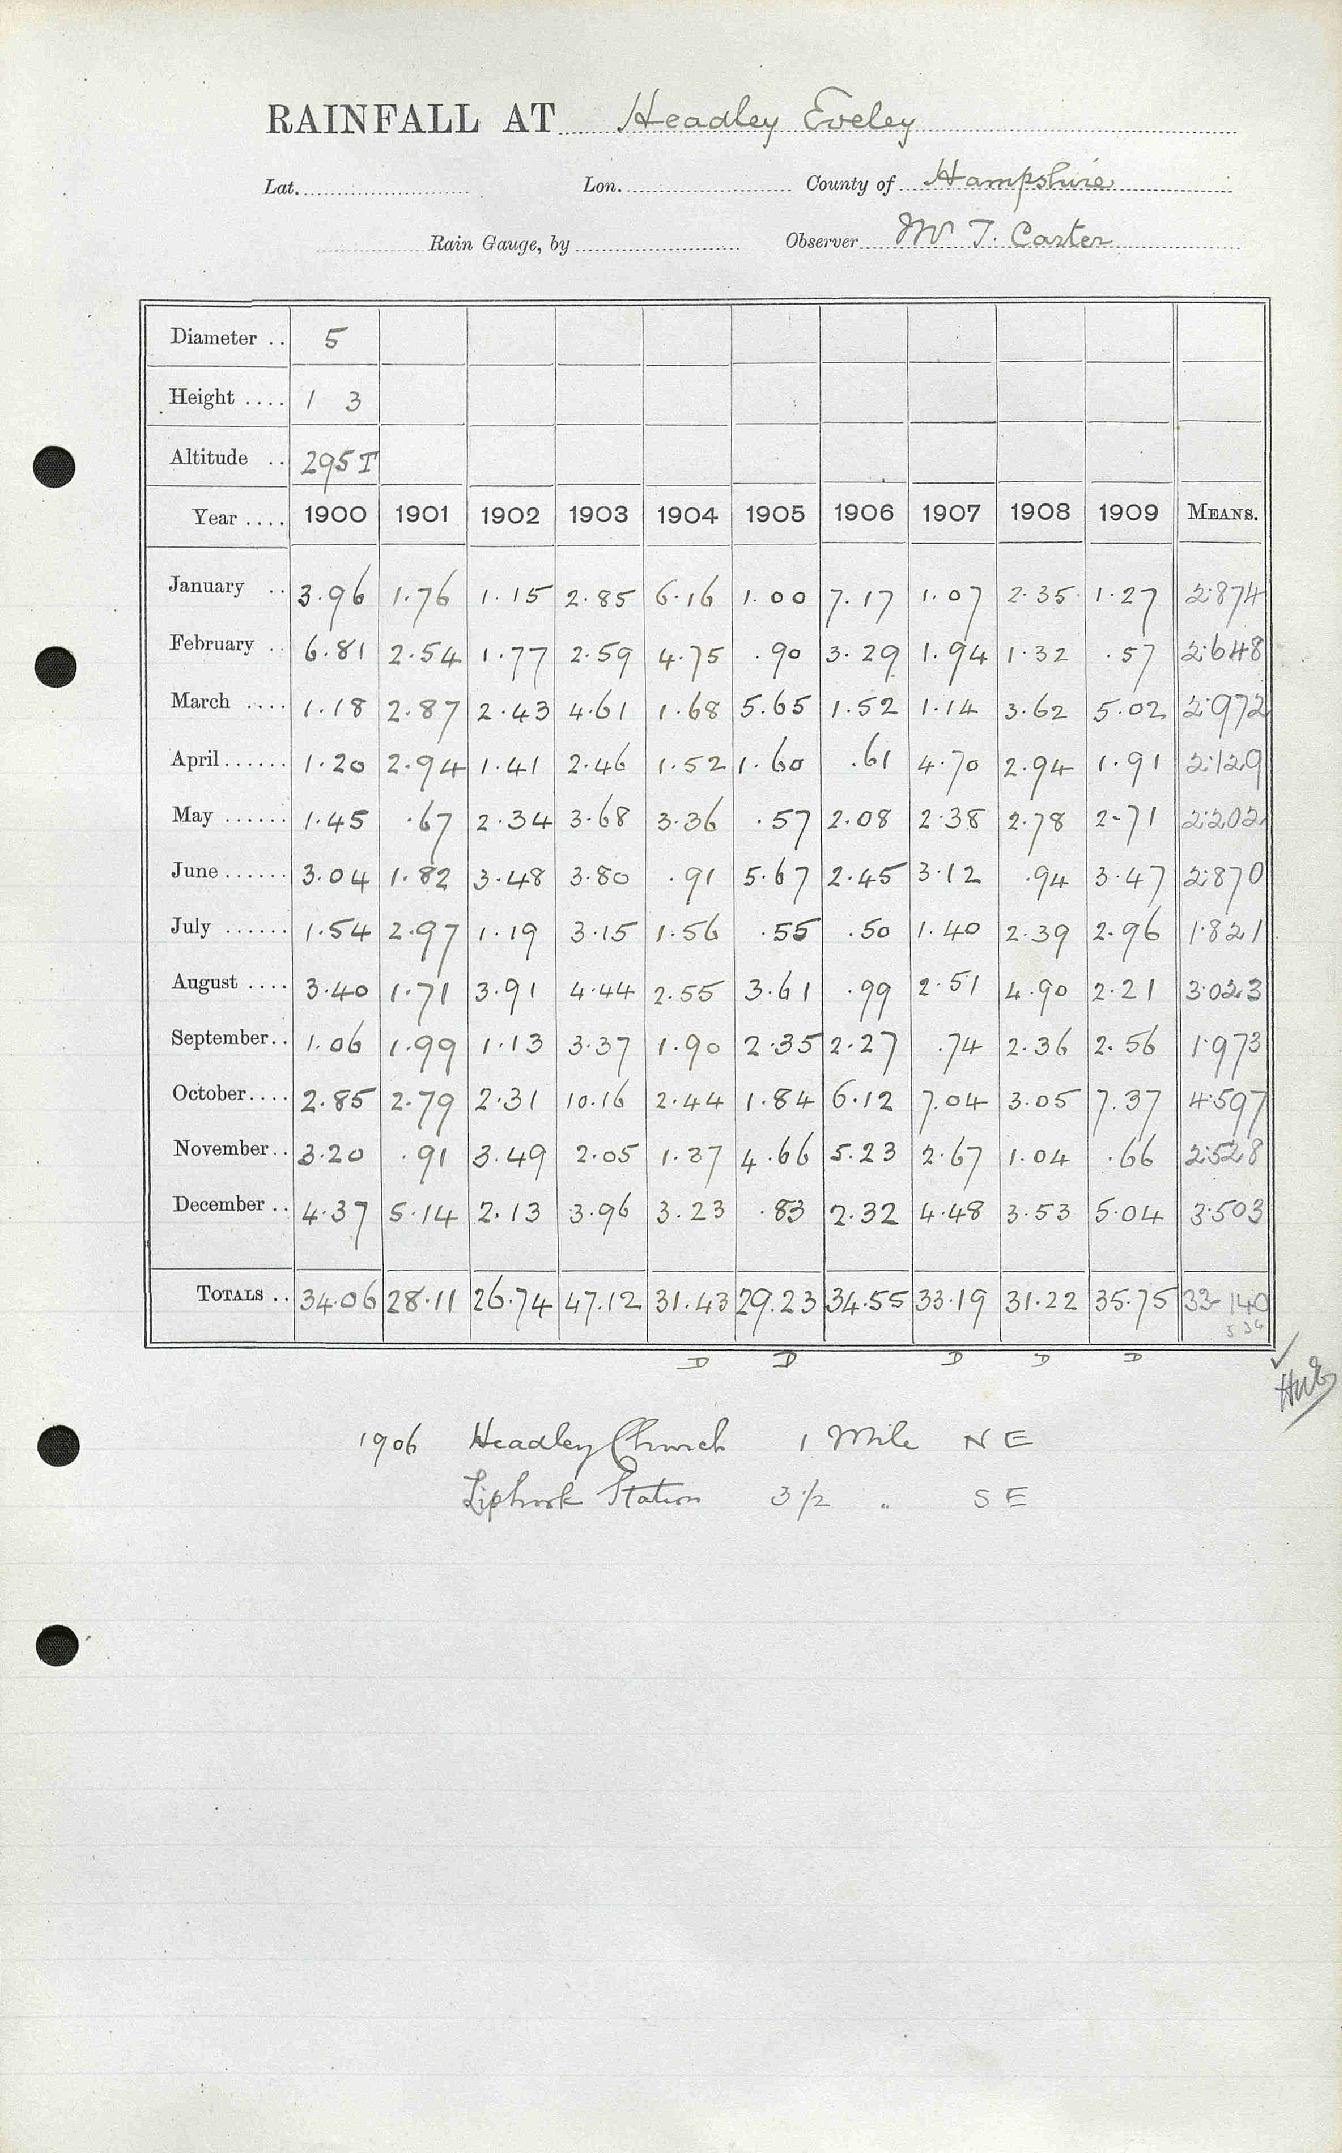 RAINFALL AT Headley Eveley
Lat. Lon. County of Hampshire
Rain Gauge, by Observer Mr T. Carter
Diameter .. 5
Height .... 1 3
Altitude .. 295 T
Year .... 1900 1901 1902 1903 1904 1905 1906 1907 1908 1909 MEANS.
January .. 3.96 1.76 1.15 2.85 6.16 1.00 7.17 1.07 2.35 1.27 2.874
February .. 6.81 2.54 1.77 2.59 4.75 .90 3.29 1.94 1.32 .57 2.648
March .... 1.18 2.87 2.43 4.61 1.68 5.65 1.52 1.14 3.62 5.02 2.972
April...... 1.20 2.94 1.41 2.46 1.52 1.60 .61 4.70 2.94 1.91 2.129
May ...... 1.45 .67 2.34 3.68 3.36 .57 2.08 2.38 2.78 2.71 2.202
June...... 3.04 1.82 3.48 3.80 .91 5.67 2.45 3.12 .94 3.47 2.870
July ...... 1.54 2.97 1.19 3.15 1.56 .55 .50 1.40 2.39 2.96 1.821
August .... 3.40 1.71 3.91 4.44 2.55 3.61 .99 2.51 4.90 2.21 3.023
September.. 1.06 1.99 1.13 3.37 1.90 2.35 2.27 .74 2.36 2.56 1.973
October.... 2.85 2.79 2.31 10.16 2.44 1.84 6.12 7.04 3.05 7.37 4.597
November.. 3.20 .91 3.49 2.05 1.37 4.66 5.23 2.67 1.04 .66 2.528
December .. 4.37 5.14 2.13 3.96 3.23 .83 2.32 4.48 3.53 5.04 3.503
TOTALS .. 34.06 28.11 26.74 47.12 31.43 29.23 34.55 33.19 31.22 35.75 33.140
D D D D D
1906 Headley Church 1 Mile N E
Liphook Station 3 1/2 " S E